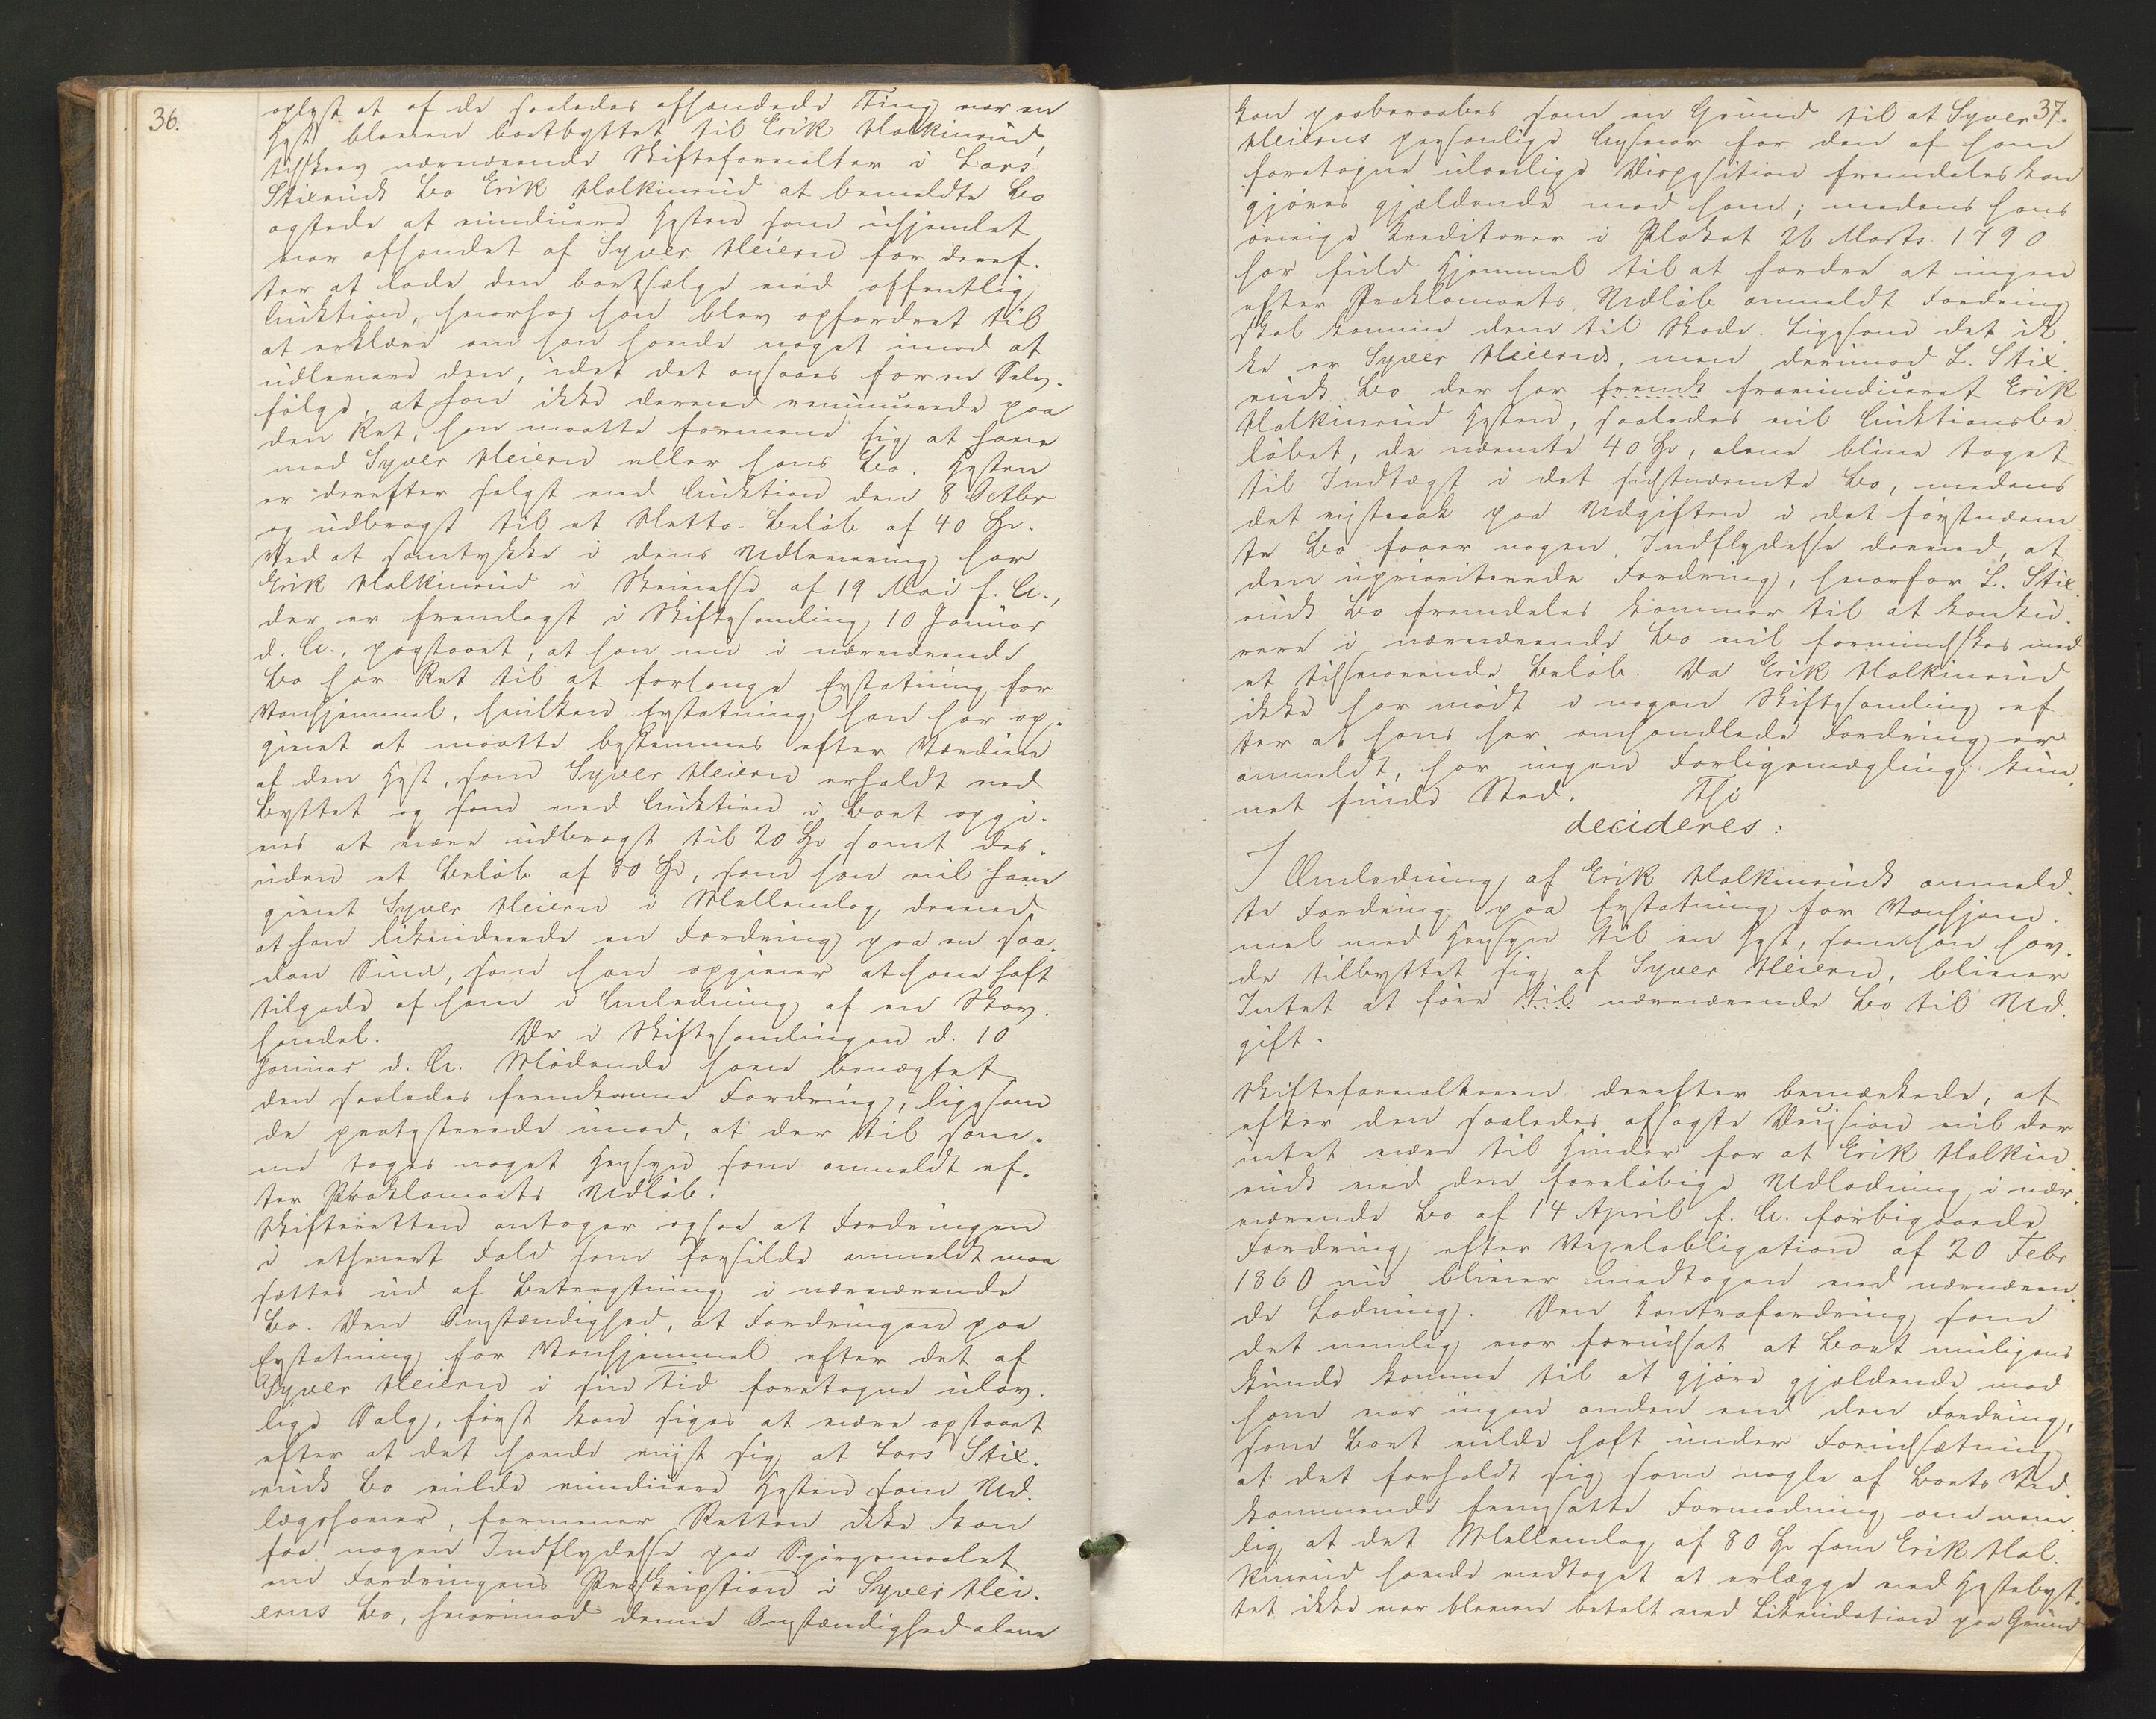 36.
oplyst at af de saaledes afhændede Ting var en
Hest bleven bortbyttet til Erik Holkinrud,
tilskrev nærværende Skifteforvalter i Lars
Stixruds Bo Erik Holkinrud at bemeldte Bo
agtede at vindicere Hesten som uhjemlet
var afhændet af Syver Heieren for deref-
ter at lade den bortsælge ved offentlig
Auktion, hvorhos han blev opfordret til
at erklære om han havde noget imod at
udlevere den, idet det ansaaes for en Selv-
følge, at han ikke derved renuncerede paa
den Ret, han maatte formene sig at have
mod Syver Heieren eller hans Bo. Hesten
er derefter solgt ved Auktion den 8 Octbr
og udbragt til et Netto-Beløb af 40 Spd.
Ved at samtykke i dens Udlevering har
Erik Holkinrud i Skrivelse af 19 Mai f. A.,
der er fremlagt i Skiftesamling 10 Januar
d. A., paastaaet, at han nu i nærværende
Bo har Ret til at forlange Erstatning for
Vanhjemmel, hvilken Erstatning han har op-
givet at maatte bestemmes efter Værdien
af den Hest, som Syver Heieren erholdt ved
Byttet og som ved Auktion i Boet opgi-
ves at være udbragt til 20 Spd samt des-
uden et Beløb af 80 Spd, som han vil have
givet Syver Heieren i Mellemlag derved
at han likviderede en Fordring paa en saa-
dan Sum, som han opgiver at have haft
tilgode af ham i Anledning af en Skov-
handel. De i Skiftesamlingen d. 10
Januar d. A. Mødende have benægtet
den saaledes fremkomne Fordring, ligesom
de protesterede imod, at der til sam-
me toges noget Hensyn som anmeldt ef-
ter Proklamaets Udløb.
Skifteretten antager ogsaa at Fordringen
i ethvert Fald som forsilde anmeldt maa
sættes ud af Betragtning i nærværende
Bo. Den Omstændighed, at Fordringen paa
Erstatning for Vanhjemmel efter det af
Syver Heieren i sin Tid foretagne ulov-
lige Salg, først kan siges at være opstaaet
efter at det havde viist sig, at Lars Stix-
ruds Bo vilde vindicere Hesten som Ud-
lægshaver, formener Retten ikke kan
faa nogen Indflydelse paa Spørgsmaalet
om Fordringens Præskription i Syver Hei-
erens Bo, hvorimod denne Omstændighed alene
37.
kan paaberaabes som en Grund til at Syver
Heierens personlige Ansvar for den af ham
foretagne ulovlige Disposition fremdeles kan
gjøres gjældende mod ham; medens hans
øvrige Kreditorer i Plakat 26 Marts 1790
har fuld Hjemmel til at fordre at ingen
efter Proklamaets Udløb anmeldt Fordring
skal komme dem til Skade. Ligesom det ik-
ke er Syver Heierens, men derimod L. Stix-
ruds Bo der har fravindiceret Erik
Holkinrud Hesten, saaledes vil Auktionsbe-
løbet, de nævnte 40 Spd, alene blive taget
til Indtægt i det sidstnævnte Bo, medens
det vistnok paa Udgiften i det førstnævn-
te Bo faaer nogen Indflydelse derved, at
den uprioriterede Fordring, hvorfor L. Stix-
ruds Bo fremdeles kommer til at konkur-
rere i nærværende Bo vil formindskes med
et tilsvarende Beløb. Da Erik Holkinrud
ikke har mødt i nogen Skiftesamling ef-
ter at hans her omhandlede Fordring er
anmeldt, har ingen Forligsmægling kun-
net finde Sted. Thi
decideres:
I Anledning af Erik Holkinruds anmeld-
te Fordring paa Erstatning for Vanhjem-
mel med Hensyn til en Hest, som han hav-
de tilbyttet sig af Syver Heieren, bliver
Intet at føre til nærværende Bo til Ud-
gift.
Skifteforvalteren derefter bemærkede, at
efter den saaledes afsagte Decision vil der
intet være til Hinder for at Erik Holkin-
ruds ved den foreløbige Udlodning i nær-
værende Bo af 14 April f. A. forbigaaede
Fordring efter Vexelobligation af 20 Febr
1860 nu bliver medtagen ved nærværen-
de Lodning. Den Kontrafordring som
det nemlig var forudsat at Boet muligens
kunde komme til at gjøre gjældende mod
ham var ingen anden end den Fordring,
som Boet vilde haft under Forudsætning
at det forholdt sig som nogle af Boets Ved-
kommende fremsatte Formodning om nem-
lig at det Mellemlag af 80 Spd som Erik Hol-
kinrud havde vedtaget at erlægge ved Hestebyt-
tet ikke var bleven betalt ved Likvidation paa Grund